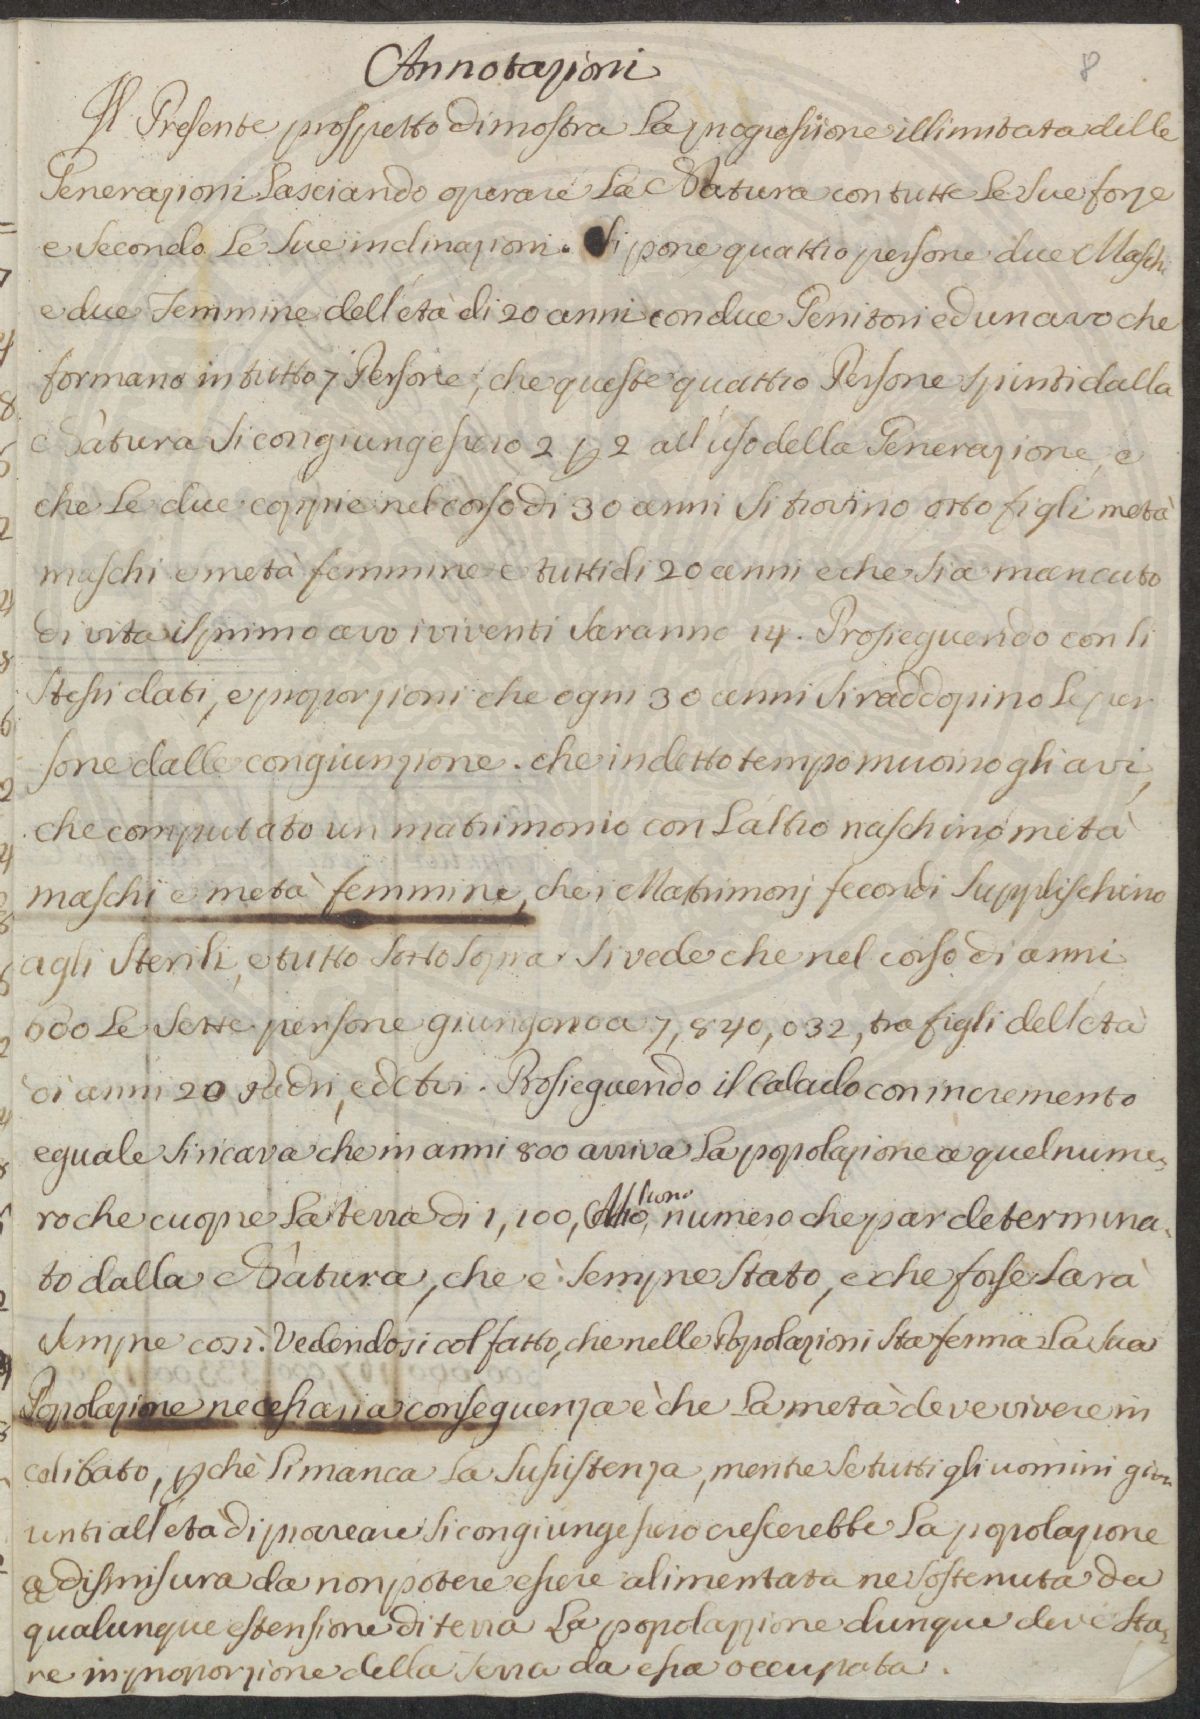 Annotazioni
8
Il Presente prospetto dimostra La progressione illimitata delle
Generazioni Lasciando operare La Natura con tutte Le Sue forze
e Secondo Le Sue inclinazioni. Si pone quattro persone due Maschi
e due Femmine dell'età di 20 anni con due Genitori ed un avo che
formano in tutto 7 Persone, che queste quattro Persone spinti dalla
Nàtura Si congiungessero 2 p 2 all'uso della Generazione, e
che Le due coppie nel corso di 30 anni Si trovino otto figli metà
maschi e metà femmine e tutti di 20 anni e che Sia mancato
di vita il primo avo i viventi Saranno 14. Prosieguendo con li
Stessi dati, e proporzioni che ogni 30 anni Si raddopino Le per
sone dalle congiunzione. che in detto tempo muoino gli avi,
che computato un matrimonio con L'altro naschino metà
maschi e metà femmine, che i Matrimonj fecondi Supplischino
agli Sterili, e tutto Sotto Sopra Si vede che nel corso di anni
600 Le Sette persone giungono a 7,840,032, tra figli dell'età
di anni 20 Padri, ed Avi. Prosieguendo il Calculo con incremento
eguale Si ricava che in anni 800 arriva La popolazione a quel nume
ro che cuopre La terra di 1,100, Millioni, numero che par determina.
to dalla Nàtura, che è Sempre Stato, e che forse Sarà
Sempre così. Vedendosi col fatto, che nelle Popolazioni Sta ferma La Sua
Popolazione necessaria conseguenza è che La metà deve vivere in
celibato, pchè Li manca La Sussistenza, mentre Se tutti gli uomini giu
unti all'età di procreare Si congiungessero crescerebbe La popolazione
a dismisura da non potere essere alimentata ne Sostenuta da
qualunque estensione di terra La popolazione dunque deve Sta
re in proporzione della Terra da essa occupata.